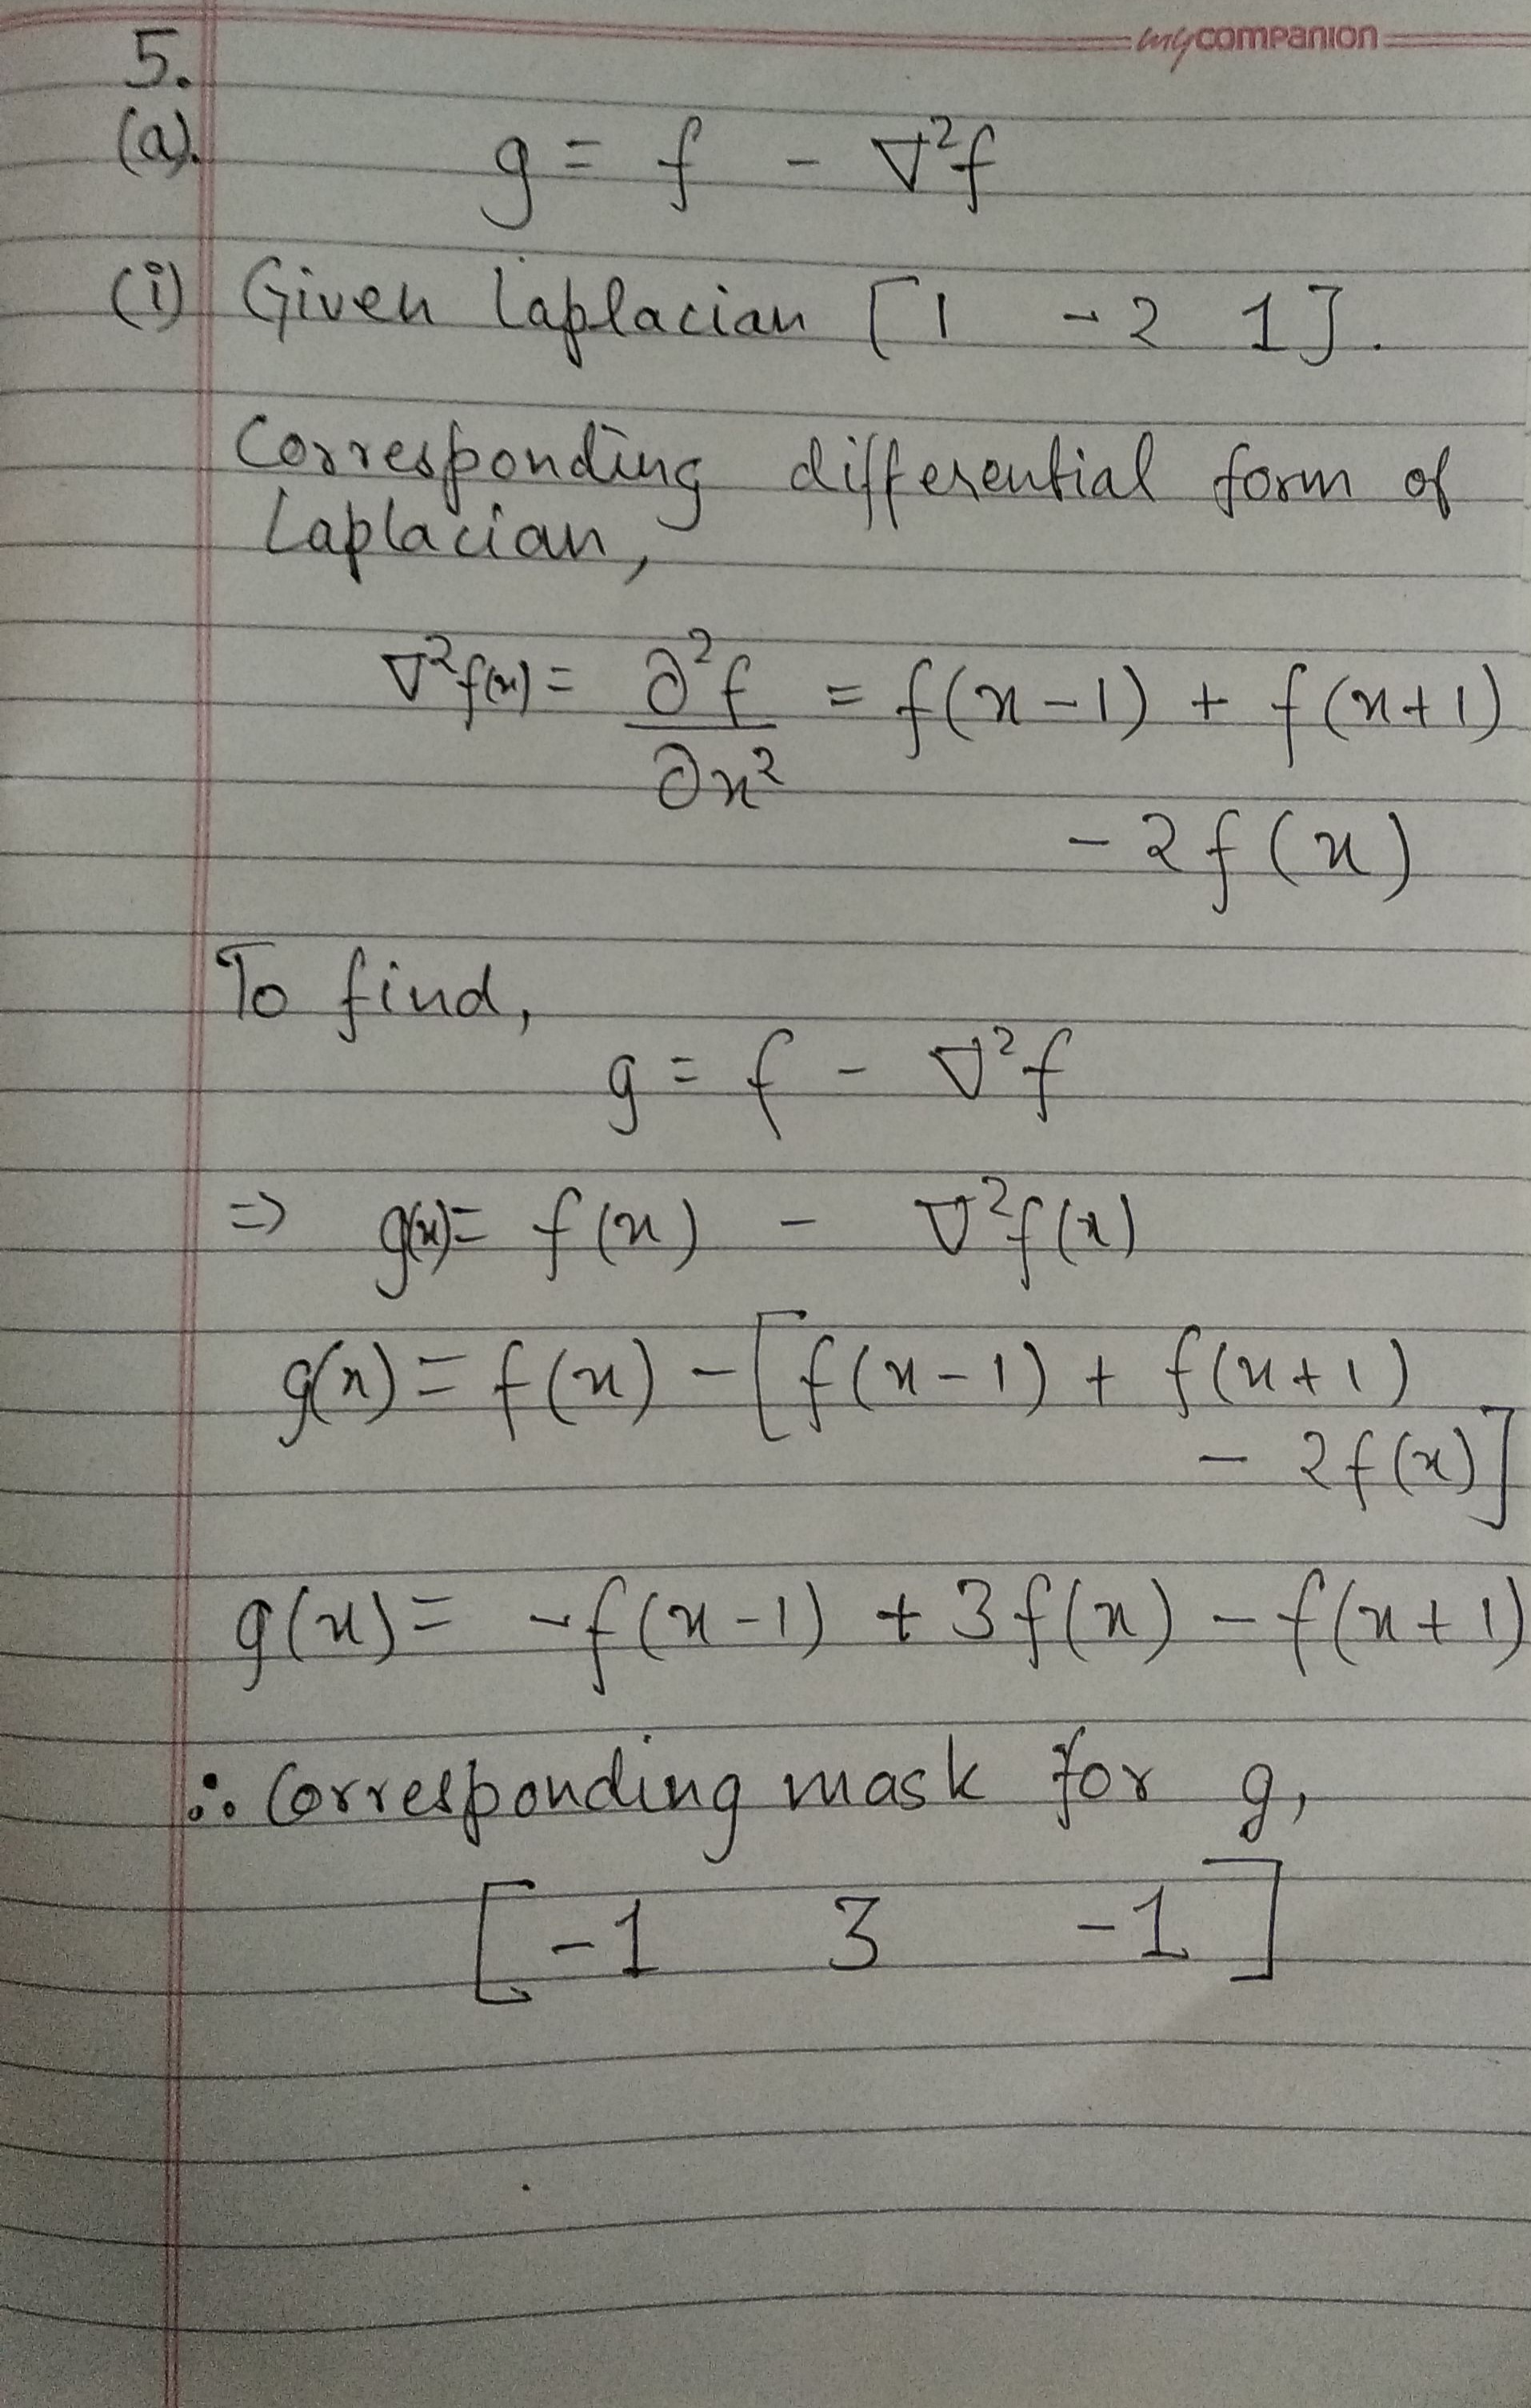 mycompanion
5.
(a). g = f - ∇²f
(i) Given Laplacian [1 -2 1].
Corresponding differential form of
Laplacian,
∇²f(x) = ∂²f/∂x² = f(x-1) + f(x+1)
- 2f(x)
To find,
g = f - ∇²f
⇒ g(x) = f(x) - ∇²f(x)
g(x) = f(x) - [f(x-1) + f(x+1)
- 2f(x)]
g(x) = -f(x-1) + 3f(x) - f(x+1)
∴ Corresponding mask for g,
[-1 3 -1]